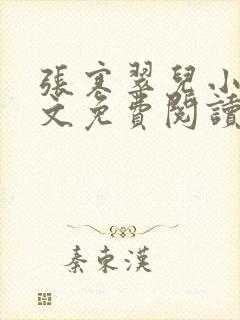 張寒翠兒小
文免費閱讀
秦東漢